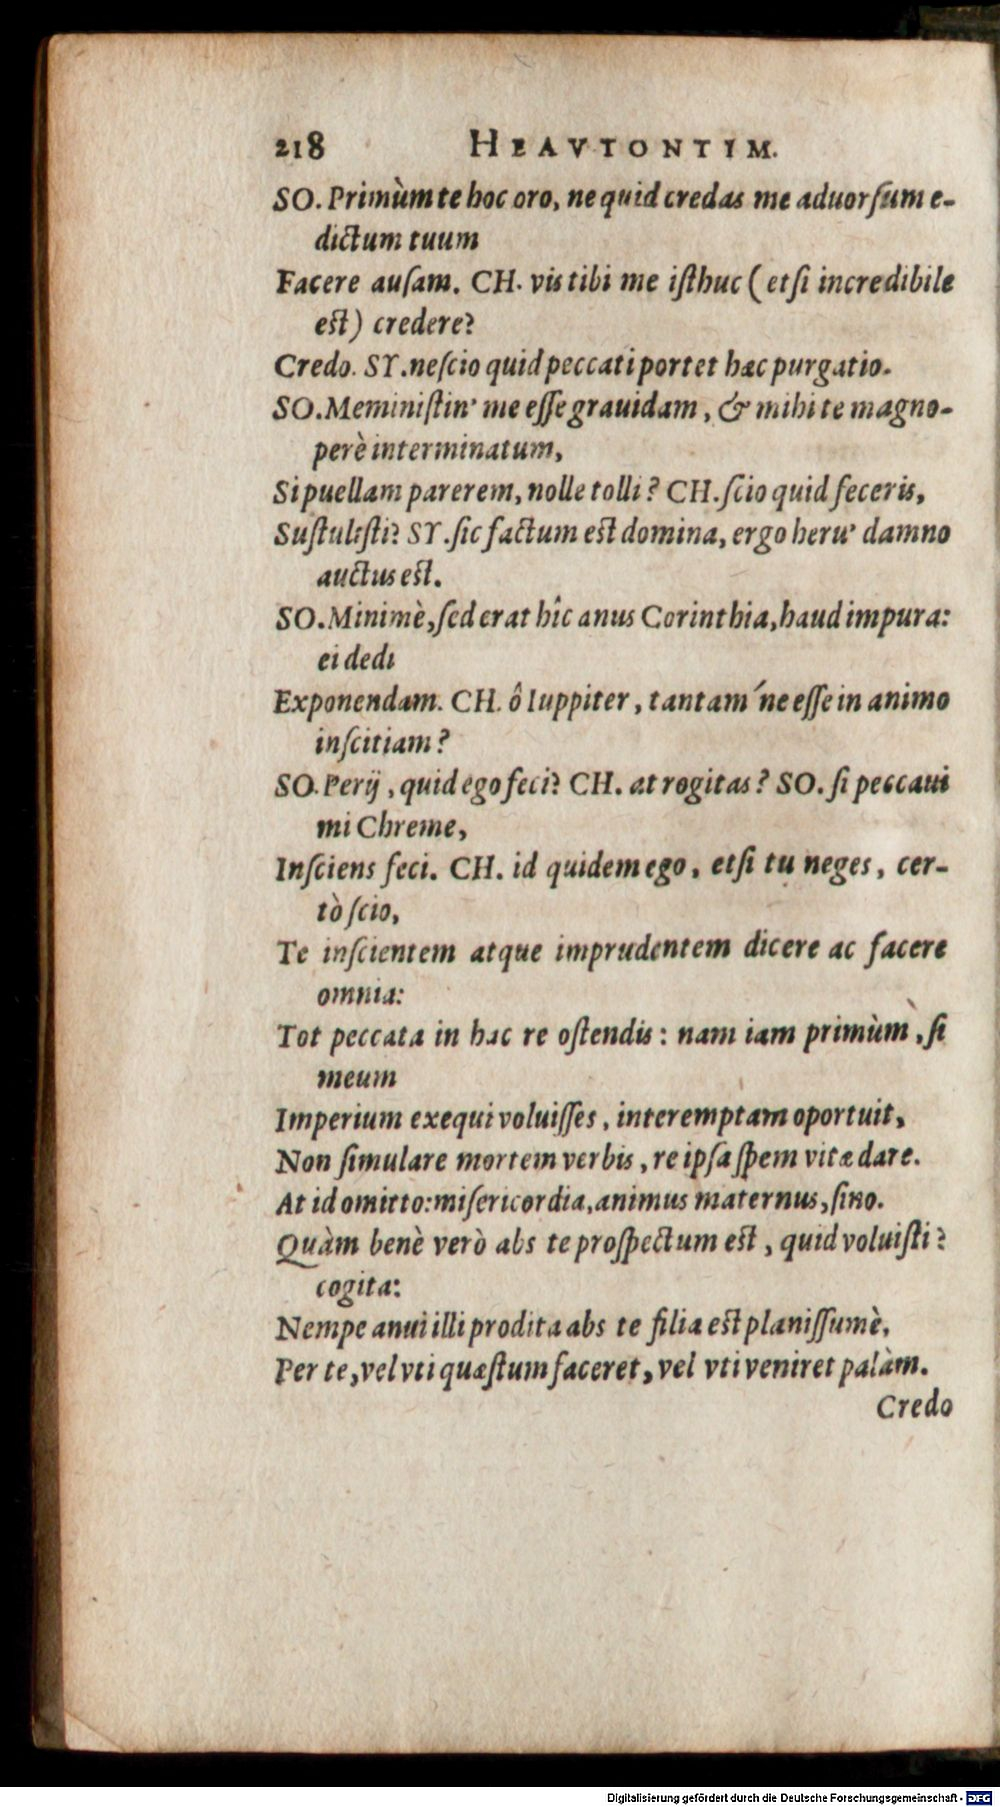 218 HEAVTONTIM.
SO. Primùm te hoc oro, ne quid credas me aduorſum e-
dictum tuum
Facere auſam. CH. vis tibi me iſthuc (etſi incredibile
est) credere?
Credo. SY. neſcio quid peccati portet hæc purgatio.
SO. Meminiſtin' me eſſe grauidam, & mihi te magno-
perè interminatum,
Si puellam parerem, nolle tolli? CH. ſcio quid feceris,
Suſtuliſti? SY. ſic factum est domina, ergo heru' damno
auctus est.
SO. Minimè, ſed erat hîc anus Corinthia, haud impura:
ei dedi
Exponendam. CH. ô Iuppiter, tantam´ne eſſe in animo
inſcitiam?
SO. Perij, quid ego feci? CH. at rogitas? SO. ſi peccaui
mi Chreme,
Inſciens feci. CH. id quidem ego, etſi tu neges, cer-
tò ſcio,
Te inſcientem atque imprudentem dicere ac facere
omnia:
Tot peccata in hac re oſtendis: nam iam primùm, ſi
meum
Imperium exequi voluiſſes, interemptam oportuit,
Non ſimulare mortem verbis, re ipſa ſpem vitæ dare.
At id omitto: miſericordia, animus maternus, ſino.
Quàm benè verò abs te proſpectum est, quid voluiſti?
cogita:
Nempe anui illi prodita abs te filia est planiſſumè,
Per te, vel vti quæſtum faceret, vel vti veniret palàm.
Credo
Digitalisierung gefördert durch die Deutsche Forschungsgemeinschaft - DFG